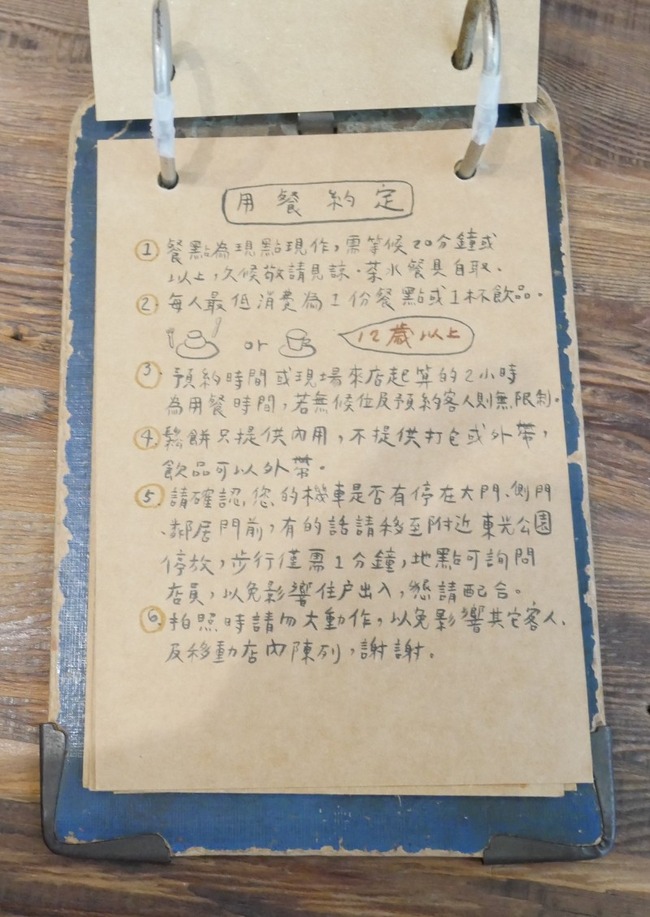 用餐約定
① 餐點為現點現作，需等候20分鐘或
以上，久候敬請見諒。茶水餐具自取。
② 每人最低消費為1份餐點或1杯飲品。
or 12歲以上
③ 預約時間或現場來店起算的2小時
為用餐時間，若無候位及預約客人則無限制。
④ 鬆餅只提供內用，不提供打包或外帶，
飲品可以外帶。
⑤ 請確認您的機車是否有停在大門、側門
、鄰居門前，有的話請移至附近東光公園
停放，步行僅需1分鐘，地點可詢問
店員，以免影響住戶出入，懇請配合。
⑥ 拍照時請勿大動作，以免影響其它客人、
及移動店內陳列，謝謝。